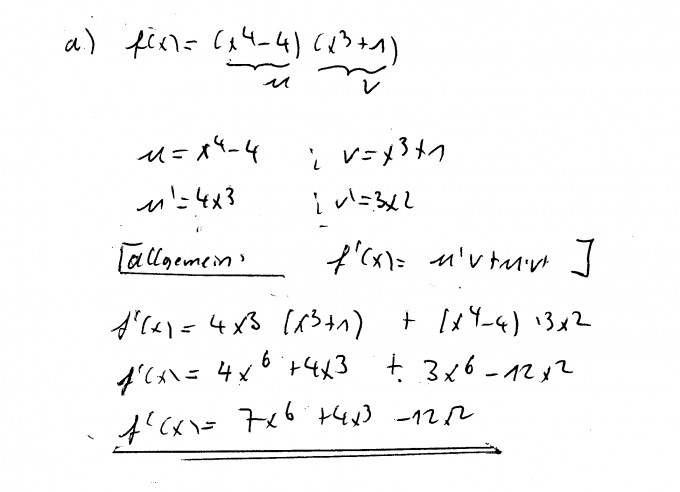 a) f(x) = (x⁴-4) (x³+1)
u v
u = x⁴-4 ; v = x³+1
u' = 4x³ ; v' = 3x²
[allgemein: f'(x) = u'v + u·v' ]
f'(x) = 4x³ (x³+1) + (x⁴-4) · 3x²
f'(x) = 4x⁶ + 4x³ + 3x⁶ - 12x²
f'(x) = 7x⁶ + 4x³ - 12x²